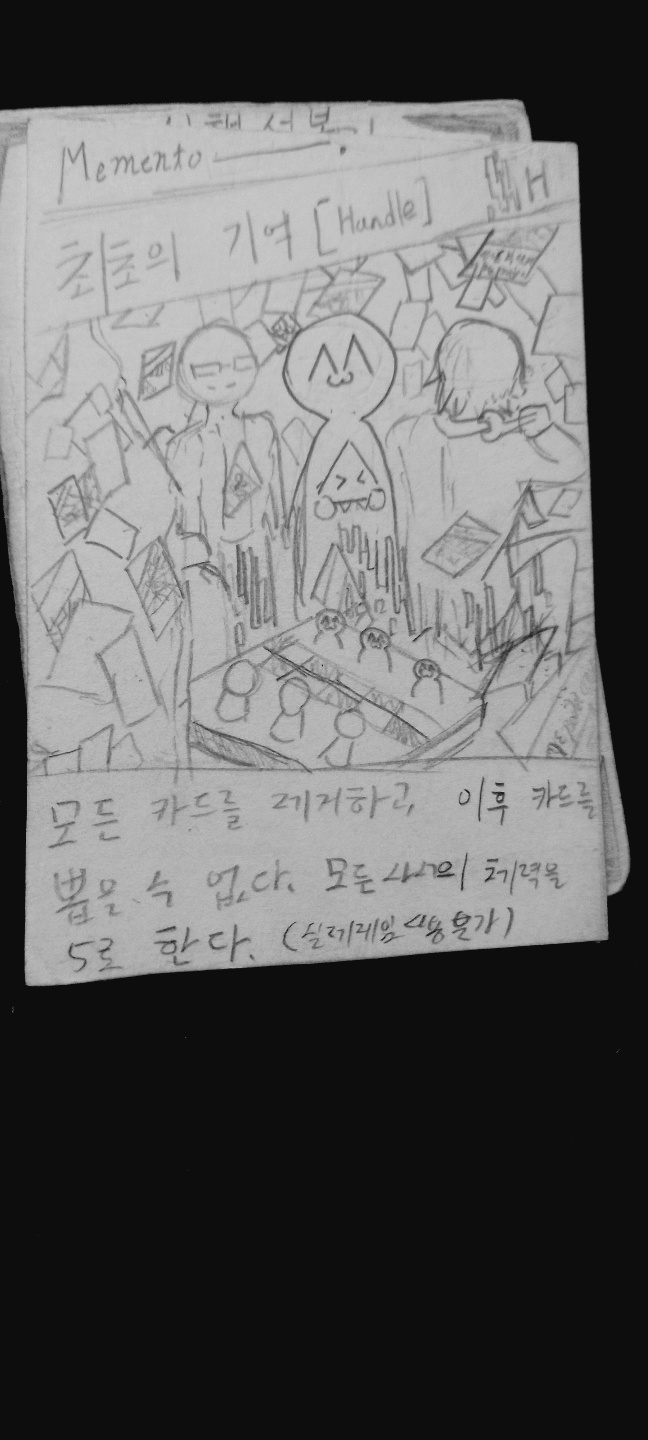 Memento
최초의 기억 [Handle]
H
모든 카드를 제거하고, 이후 카드를
뽑을 수 없다. 모든 사서의 체력을
5로 한다. (실제게임 사용 불가)